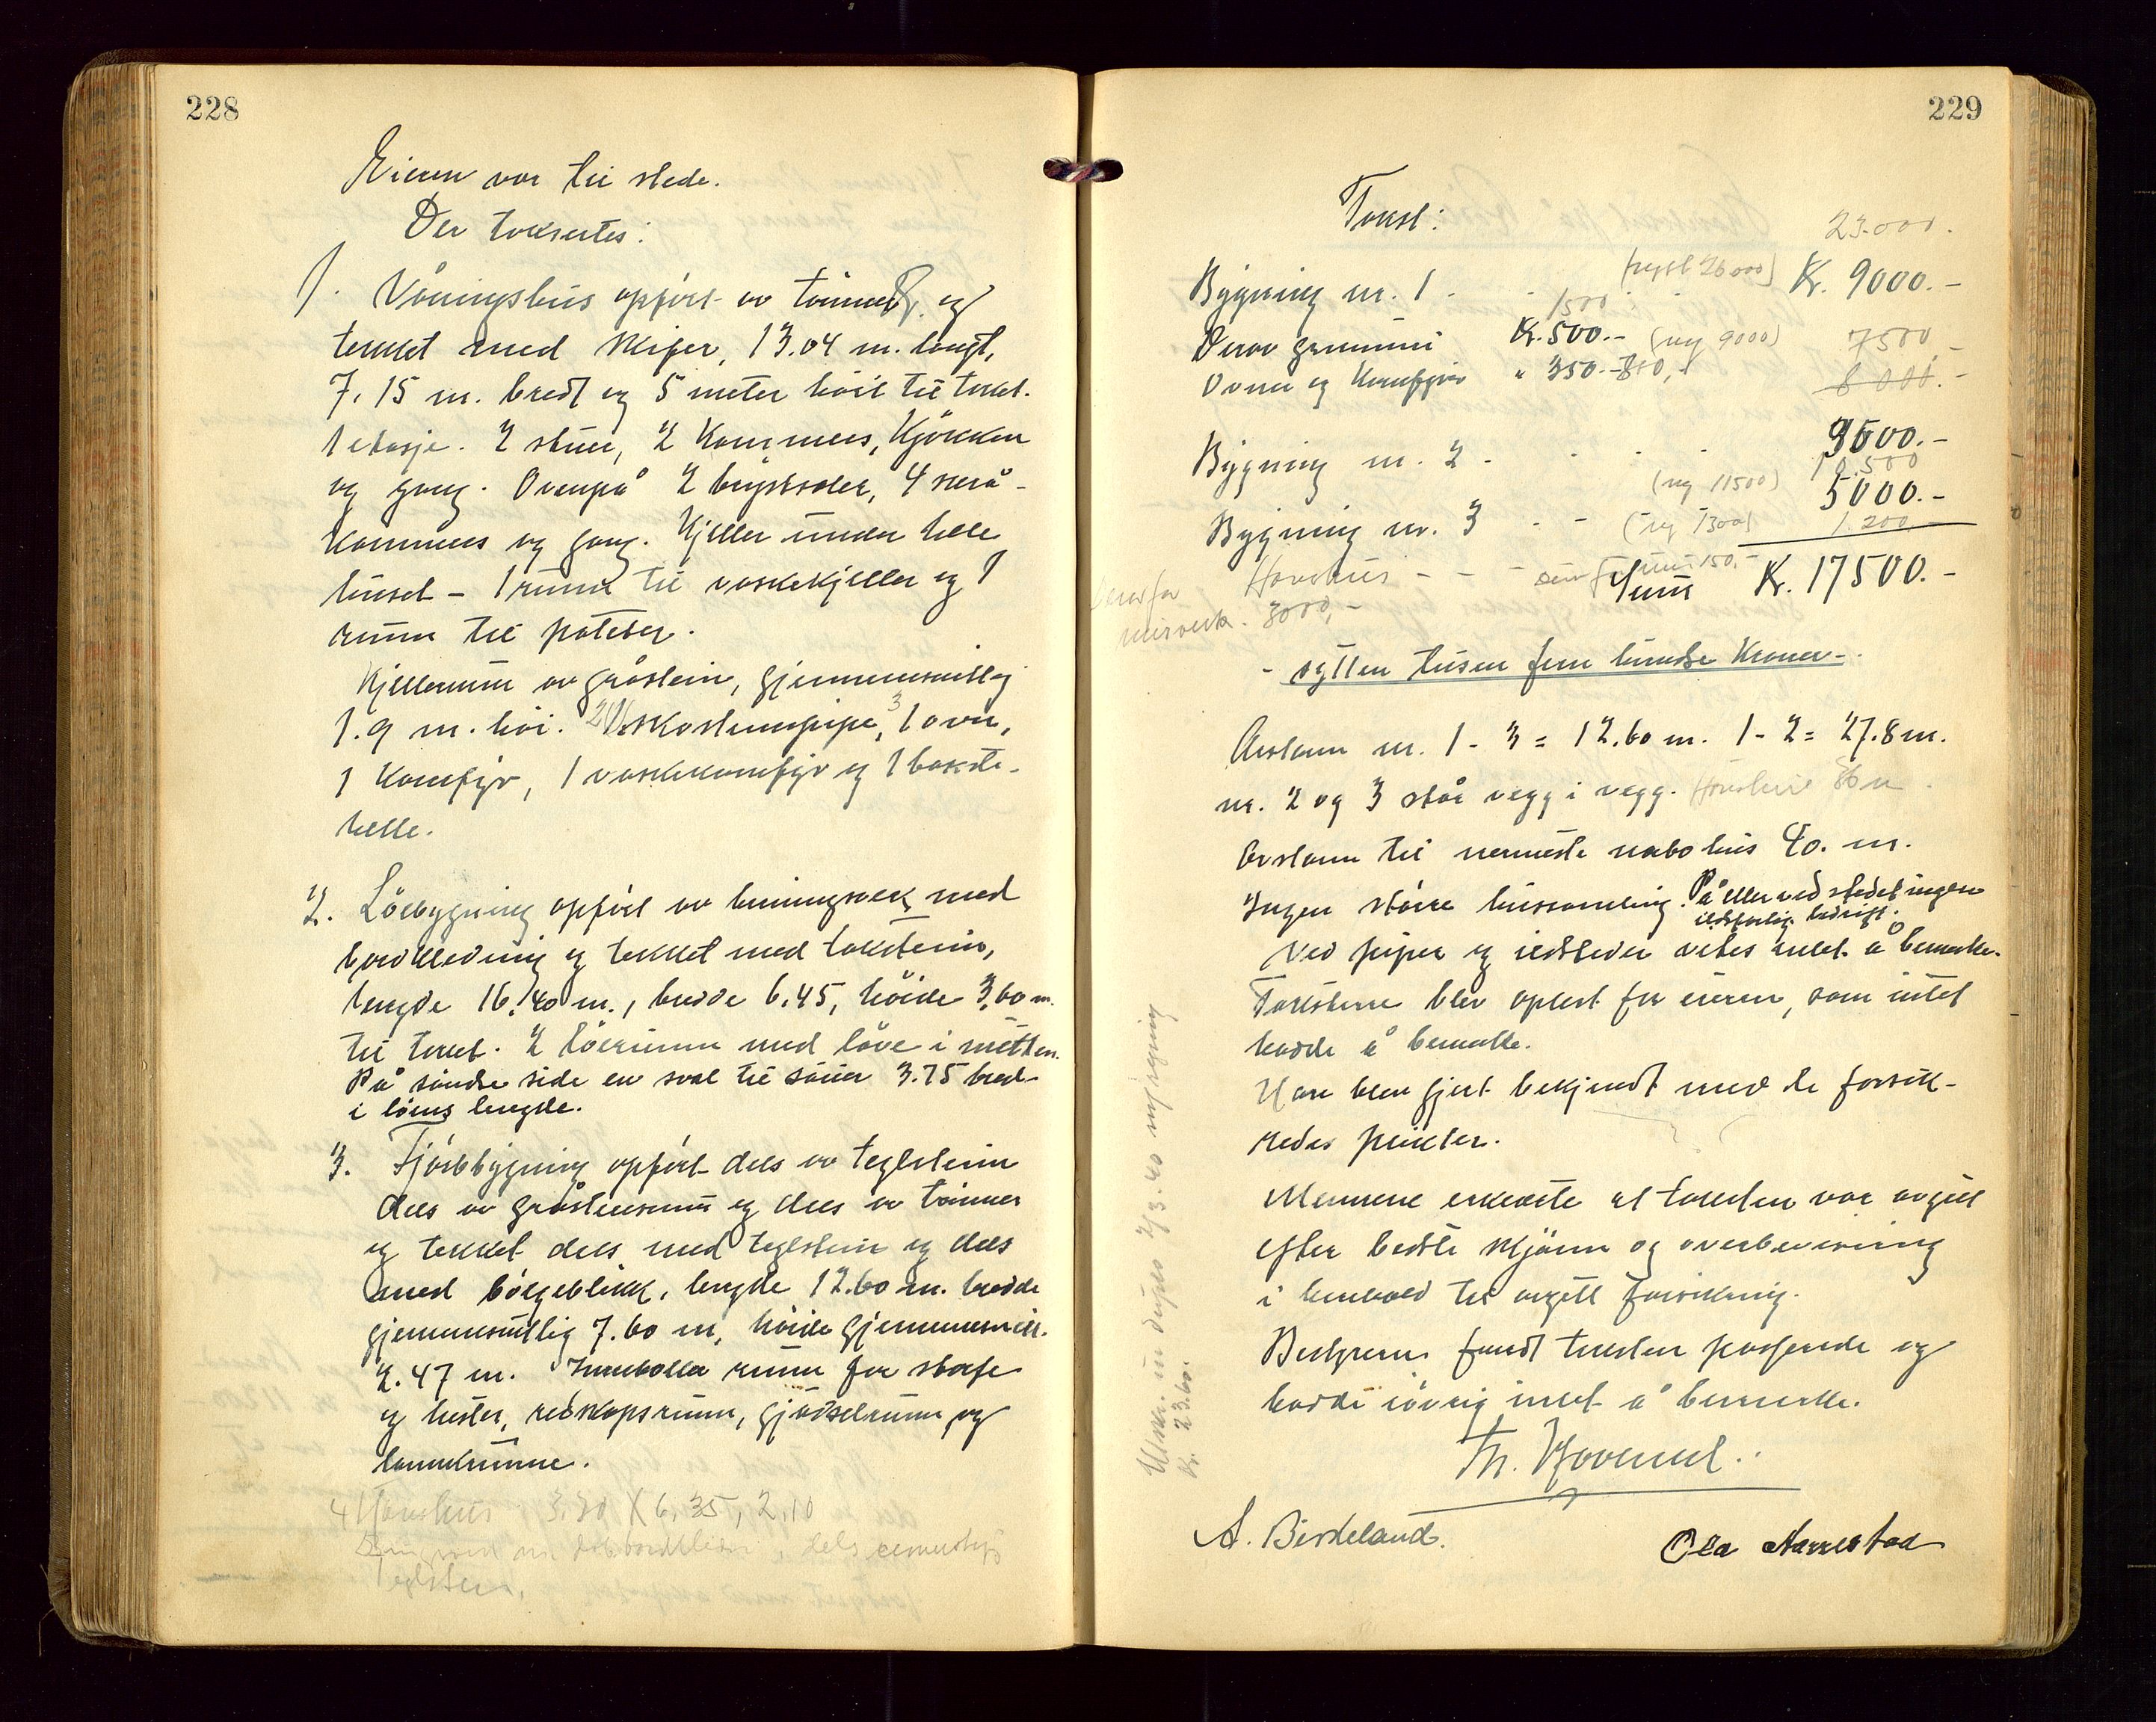 228
Eieren var til stede.
Der takseertes:
1. Våningshus opført av tømmer og
tekket med skifer, 13.04 m. langt,
7.15 m. bredt og 5 meter høit til taket.
1 etasje. 2 stuer, 2 kammers, Kjøkken
og gang. Ovenpå 2 brystsaler, 4 skrå-
kammers og gang. Kjeller under hele
huset - 1 rumm til vaskekjeller og 1
rumm til poteter.
Kjellermur av gråstein, gjennemsnitlig
1.9 m. høi. 2 skorstenspipe, 3 1 ovn,
1 Komfyr, 1 vaskekomfyr og 1 bakste-
helle.
2. Løebygning opført av binningsverk med
bordkledning og tekket med takstein,
lengde 16.40 m., bredde 6.45, høide 3.60 m.
til taket. 2 løerumm med låve i midten.
På søndre side en sval til sauer 3.75 bred
i løens lengde.
3. Fjøsbygning opført dels av teglstein
dels av gråsteinsmur og dels av tømmer
og tekket dels med teglstein og dels
med bølgeblikk, lengde 12.60 m. bredde
gjennemsnitlig 7.60 m, høide gjennemsnitl.
2.47 m. Inneholder rumm for storfe
og hester, redskapsrumm, gjødselrumm og
lannkumme.
4 Hønshus 3.30 X 6.35, 2.10
bordkledn, dels
Teglstein.
229
Takst:
23.000.
Bygning nr. 1 - (nytt 26000) Kr. 9000.-
1500
Derav grunnmur Kr. 500.- (ny 9000) 7500
Ovner og Komfyrer " 350.- 8 000.-
Bygning nr. 2 - 3500.-
10.500
(ny 11500)
Bygning nr. 3 - - 5000.-
(ny 1300) 1.200
Hønshus - - - mur 150,-
Sum Kr. 17500.-
Derav for
murverk. 3000,-
- sytten tusen fem hundre Kroner -
Avstann nr. 1 - 3 = 12.60 m. 1 - 2 = 27.8 m.
nr. 2 og 3 står vegg i vegg. Hønshus 86 m
Avstann til nermeste nabohus 40. m.
Ingen større hussamling. På eller ved stedet ingen
ildsfarlig bedrift.
Ved piper og ildsteder vites intet å bemerke.
Takstene blev oplest for eieren, som intet
hadde å bemerke.
Han blev gjort bekjendt med de forsik-
redes plikter.
Mennene erklærte at taksten var avgitt
efter bedste skjønn og overbevisning
i henhold til avgitt forsikring.
Bestyreren fandt taksten passende og
hadde iøvrig intet å bemerke.
Th. Hovend.
A. Birkeland.
Ola Aarrestad
2/3.40 ny
kr. 23.60.